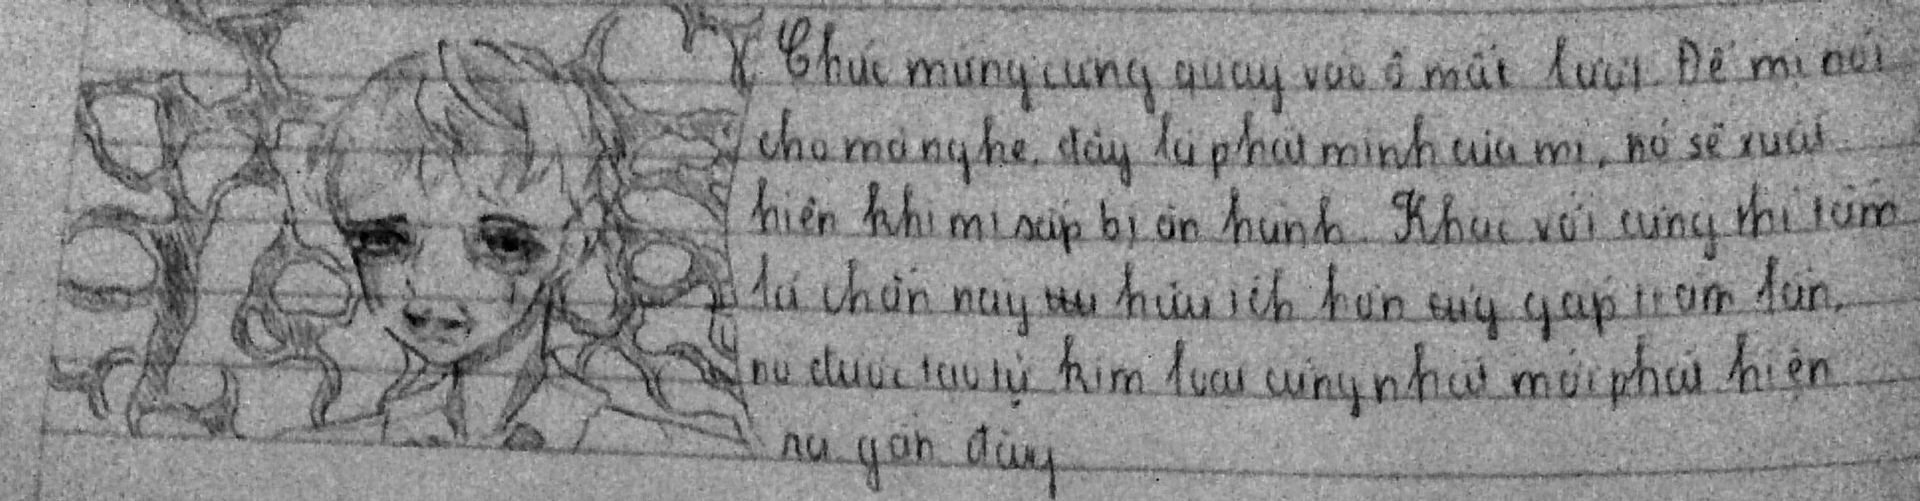 Chúc mừng cưng quay vào ô mất lượt. Để mị nói
cho mà nghe, đây là phát minh của mị, nó sẽ xuất
hiện khi mị sắp bị ăn hành. Khác với cưng thì tấm
lá chắn này hữu ích hơn cưng gấp trăm lần,
nó được tạo từ kim loại cứng nhất mới phát hiện
ra gần đây